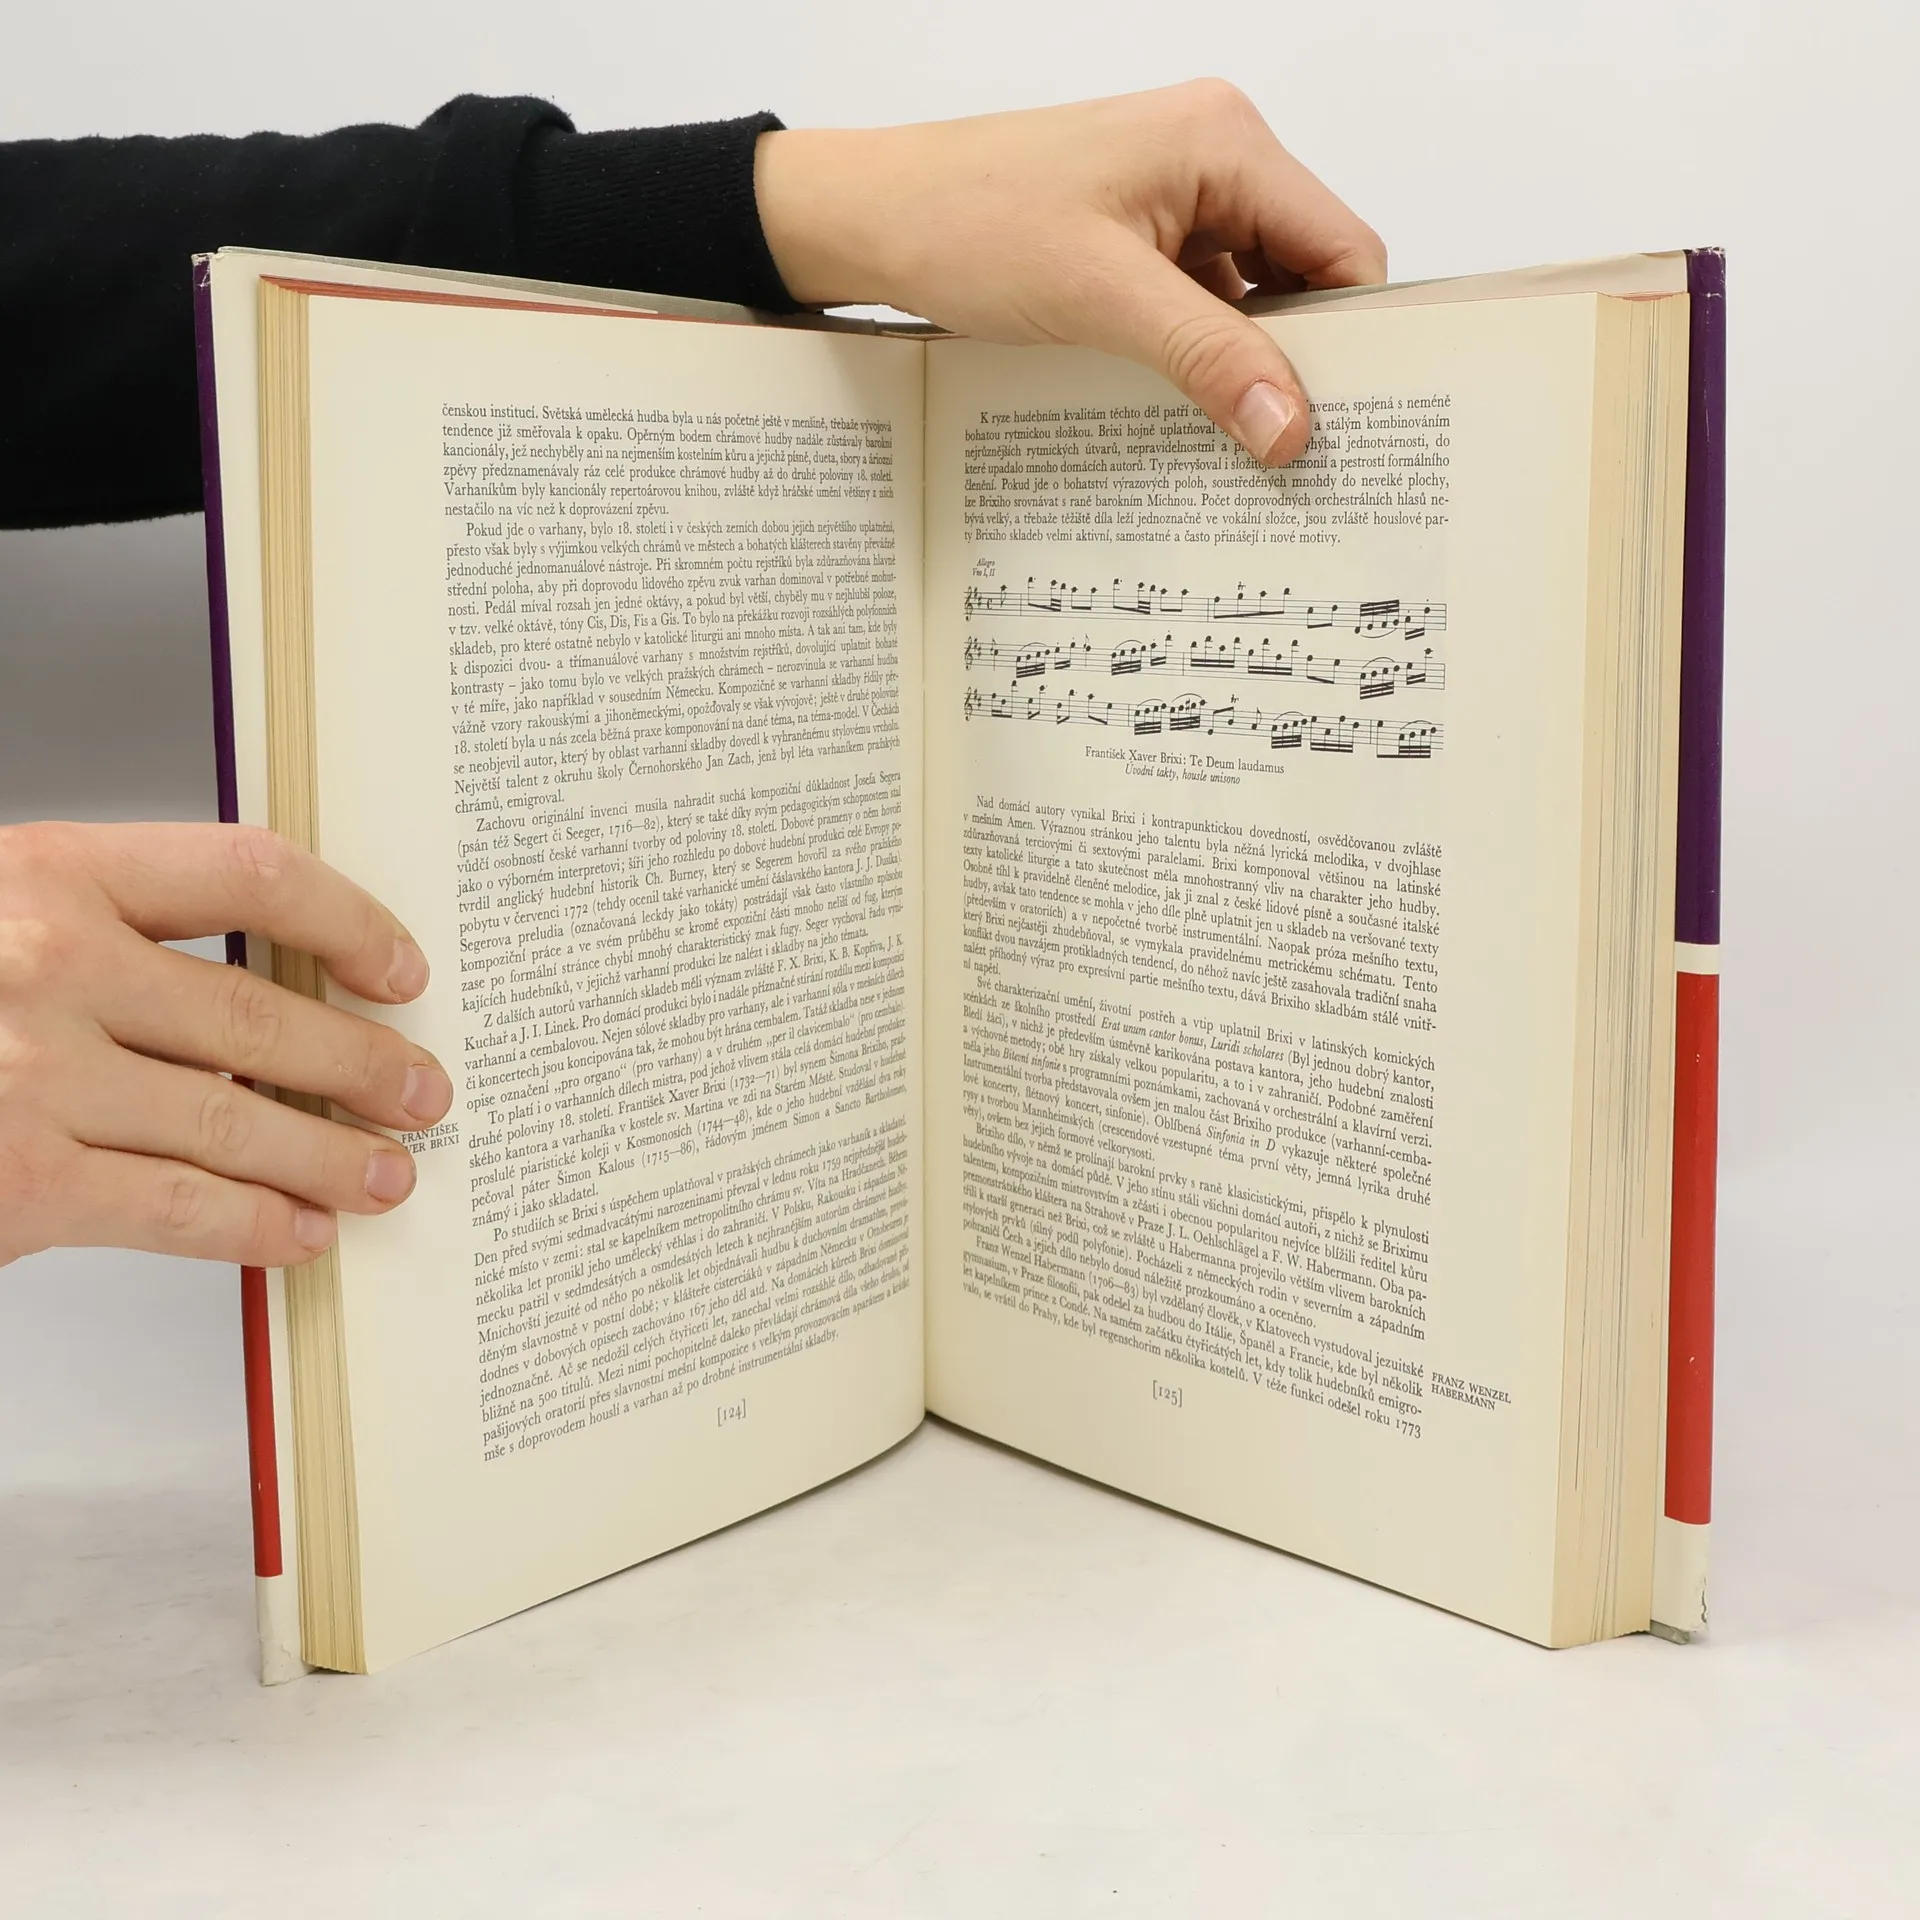 čenskou institucí. Světská umělecká hudba byla u nás početně ještě v menšině, třebaže vývojová
tendence již směřovala k opaku. Opěrným bodem chrámové hudby nadále zůstávaly barokní
kancionály, jež nechyběly ani na nejmenším kostelním kůru a jejichž písně, dueta, sbory a áriozní
zpěvy předznamenávaly ráz celé produkce chrámové hudby až do druhé poloviny 18. století.
Varhaníkům byly kancionály repertoárovou knihou, zvláště když hráčské umění většiny z nich
nestačilo na víc než k doprovázení zpěvu.
Pokud jde o varhany, bylo 18. století i v českých zemích dobou jejich největšího uplatnění,
přesto však byly s výjimkou velkých chrámů ve městech a bohatých klášterech stavěny převážně
jednoduché jednomanuálové nástroje. Při skromném počtu rejstříků byla zdůrazňována hlavně
střední poloha, aby při doprovodu lidového zpěvu zvuk varhan dominoval v potřebné mohut-
nosti. Pedál míval rozsah jen jedné oktávy, a pokud byl větší, chyběly mu v nejhlubší poloze,
v tzv. velké oktávě, tóny Cis, Dis, Fis a Gis. To bylo na překážku rozvoji rozsáhlých polyfonních
skladeb, pro které ostatně nebylo v katolické liturgii ani mnoho místa. A tak ani tam, kde byly
k dispozici dvou- a třímanuálové varhany s množstvím rejstříků, dovolující uplatnit bohaté
kontrasty – jako tomu bylo ve velkých pražských chrámech – nerozvinula se varhanní hudba
v té míře, jako například v sousedním Německu. Kompozičně se varhanní skladby řídily pře-
vážně vzory rakouskými a jihoněmeckými, opožďovaly se však vývojově; ještě v druhé polovině
18. století byla u nás zcela běžná praxe komponování na dané téma, na téma-model. V Čechách
se neobjevil autor, který by oblast varhanní skladby dovedl k vyhraněnému stylovému vrcholu.
Největší talent z okruhu školy Černohorského Jan Zach, jenž byl léta varhaníkem pražských
chrámů, emigroval.
Zachovu originální invenci musila nahradit suchá kompoziční důkladnost Josefa Segera
(psán též Segert či Seeger, 1716—82), který se také díky svým pedagogickým schopnostem stal
vůdčí osobností české varhanní tvorby od poloviny 18. století. Dobové prameny o něm hovoří
jako o výborném interpretovi; šíři jeho rozhledu po dobové hudební produkci celé Evropy po-
tvrdil anglický hudební historik Ch. Burney, který se Segerem hovořil za svého pražského
pobytu v červenci 1772 (tehdy ocenil také varhanické umění čáslavského kantora J. J. Dusíka).
Segerova preludia (označovaná leckdy jako tokáty) postrádají však často vlastního způsobu
kompoziční práce a ve svém průběhu se kromě expoziční části mnoho neliší od fug, kterým
zase po formální stránce chybí mnohý charakteristický znak fugy. Seger vychoval řadu vyni-
kajících hudebníků, v jejichž varhanní produkci lze nalézt i skladby na jeho témata.
Z dalších autorů varhanních skladeb měli význam zvláště F. X. Brixi, K. B. Kopřiva, J. K.
Kuchař a J. I. Linek. Pro domácí produkci bylo i nadále příznačné stírání rozdílu mezi kompozicí
varhanní a cembalovou. Nejen sólové skladby pro varhany, ale i varhanní sóla v mešních dílech
či koncertech jsou koncipována tak, že mohou být hrána cembalem. Tatáž skladba nese v jednom
opise označení „pro organo“ (pro varhany) a v druhém „per il clavicembalo“ (pro cembalo).
To platí i o varhanních dílech mistra, pod jehož vlivem stála celá domácí hudební produkce
druhé poloviny 18. století. František Xaver Brixi (1732—71) byl synem Šimona Brixiho, praž-
ského kantora a varhaníka v kostele sv. Martina ve zdi na Starém Městě. Studoval v hudebně
proslulé piaristické koleji v Kosmonosích (1744—48), kde o jeho hudební vzdělání dva roky
pečoval páter Šimon Kalous (1715—86), řádovým jménem Simon a Sancto Bartholomeo,
známý i jako skladatel.
FRANTIŠEK
VER BRIXI
Po studiích se Brixi s úspěchem uplatňoval v pražských chrámech jako varhaník a skladatel.
Den před svými sedmadvacátými narozeninami převzal v lednu roku 1759 nejpřednější hudeb-
nické místo v zemi: stal se kapelníkem metropolitního chrámu sv. Víta na Hradčanech. Během
několika let pronikl jeho umělecký věhlas i do zahraničí. V Polsku, Rakousku i západním Ně-
mecku patřil v sedmdesátých a osmdesátých letech k nejhranějším autorům chrámové hudby.
Mnichovští jezuité od něho po několik let objednávali hudbu k duchovním dramatům, prová-
děným slavnostně v postní době; v klášteře cisterciáků v západním Německu v Ottobeuren je
dodnes v dobových opisech zachováno 167 jeho děl atd. Na domácích kůrech Brixi dominoval
jednoznačně. Ač se nedožil celých čtyřiceti let, zanechal velmi rozsáhlé dílo, odhadované při-
bližně na 500 titulů. Mezi nimi pochopitelně daleko převládají chrámová díla všeho druhu, od
pašijových oratorií přes slavnostní mešní kompozice s velkým provozovacím aparátem a krátké
mše s doprovodem houslí a varhan až po drobné instrumentální skladby.
[124]
K ryze hudebním kvalitám těchto děl patří nvence, spojená s neméně
bohatou rytmickou složkou. Brixi hojně uplatňoval a stálým kombinováním
nejrůznějších rytmických útvarů, nepravidelnostmi a yhýbal jednotvárnosti, do
které upadalo mnoho domácích autorů. Ty převyšoval i složitou harmonií a pestrostí formálního
členění. Pokud jde o bohatství výrazových poloh, soustředěných mnohdy do nevelké plochy,
lze Brixiho srovnávat s raně barokním Michnou. Počet doprovodných orchestrálních hlasů ne-
bývá velký, a třebaže těžiště díla leží jednoznačně ve vokální složce, jsou zvláště houslové par-
ty Brixiho skladeb velmi aktivní, samostatné a často přinášejí i nové motivy.
Allegro
Vno I, II
František Xaver Brixi: Te Deum laudamus
Úvodní takty, housle unisono
Nad domácí autory vynikal Brixi i kontrapunktickou dovedností, osvědčovanou zvláště
v mešním Amen. Výraznou stránkou jeho talentu byla něžná lyrická melodika, v dvojhlase
zdůrazňovaná terciovými či sextovými paralelami. Brixi komponoval většinou na latinské
texty katolické liturgie a tato skutečnost měla mnohostranný vliv na charakter jeho hudby.
Osobně tíhl k pravidelně členěné melodice, jak ji znal z české lidové písně a současné italské
hudby, avšak tato tendence se mohla v jeho díle plně uplatnit jen u skladeb na veršované texty
(především v oratoriích) a v nepočetné tvorbě instrumentální. Naopak próza mešního textu,
který Brixi nejčastěji zhudebňoval, se vymykala pravidelnému metrickému schématu. Tento
konflikt dvou navzájem protikladných tendencí, do něhož navíc ještě zasahovala tradiční snaha
nalézt příhodný výraz pro expresívní partie mešního textu, dává Brixiho skladbám stálé vnitř-
ní napětí.
Své charakterizační umění, životní postřeh a vtip uplatnil Brixi v latinských komických
scénkách ze školního prostředí Erat unum cantor bonus, Luridi scholares (Byl jednou dobrý kantor,
Bledí žáci), v nichž je především úsměvně karikována postava kantora, jeho hudební znalosti
a výchovné metody; obě hry získaly velkou popularitu, a to i v zahraničí. Podobné zaměření
měla jeho Bitevní sinfonie s programními poznámkami, zachovaná v orchestrální a klavírní verzi.
Instrumentální tvorba představovala ovšem jen malou část Brixiho produkce (varhanní-cemba-
lové koncerty, flétnový koncert, sinfonie). Oblíbená Sinfonia in D vykazuje některé společné
rysy s tvorbou Mannheimských (crescendové vzestupné téma první věty, jemná lyrika druhé
věty), ovšem bez jejich formové velkorysosti.
Brixiho dílo, v němž se prolínají barokní prvky s raně klasicistickými, přispělo k plynulosti
hudebního vývoje na domácí půdě. V jeho stínu stáli všichni domácí autoři, z nichž se Briximu
talentem, kompozičním mistrovstvím a zčásti i obecnou popularitou nejvíce blížili ředitel kůru
premonstrátského kláštera na Strahově v Praze J. L. Oehlschlägel a F. W. Habermann. Oba pa-
třili k starší generaci než Brixi, což se zvláště u Habermanna projevilo větším vlivem barokních
stylových prvků (silný podíl polyfonie). Pocházeli z německých rodin v severním a západním
pohraničí Čech a jejich dílo nebylo dosud náležitě prozkoumáno a oceněno.
Franz Wenzel Habermann (1706—83) byl vzdělaný člověk, v Klatovech vystudoval jezuitské
gymnasium, v Praze filosofii, pak odešel za hudbou do Itálie, Španěl a Francie, kde byl několik
let kapelníkem prince z Condé. Na samém začátku čtyřicátých let, kdy tolik hudebníků emigro-
valo, se vrátil do Prahy, kde byl regenschorim několika kostelů. V téže funkci odešel roku 1773
FRANZ WENZEL
HABERMANN
[125]